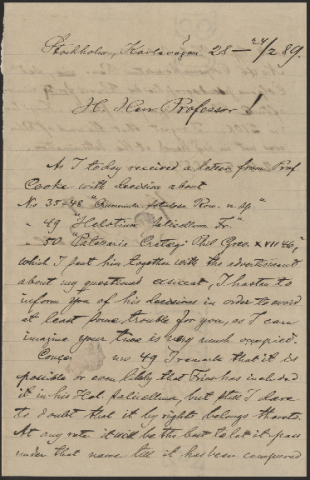 Stockholm, Karlavägen 28 — 24/2 89.
H. Herr Professor!
As I today received a letter from Prof
Cooke with decision about
No 35-48
" 49 "Helotium salicellum Fr."
" 50
which I put him together with the
about my questions, I hasten to
inform you of his decisions in order to avoid
at least some trouble for you, as I can
imagine your time is very much occupied.
no 49 I remark that it is
possible or even likely that Fries has included
it in his Hel. salicellum, but still I dare
to doubt that it by rights belongs thereto.
At any rate it will be the best to let it pass
under that name till it has been compared